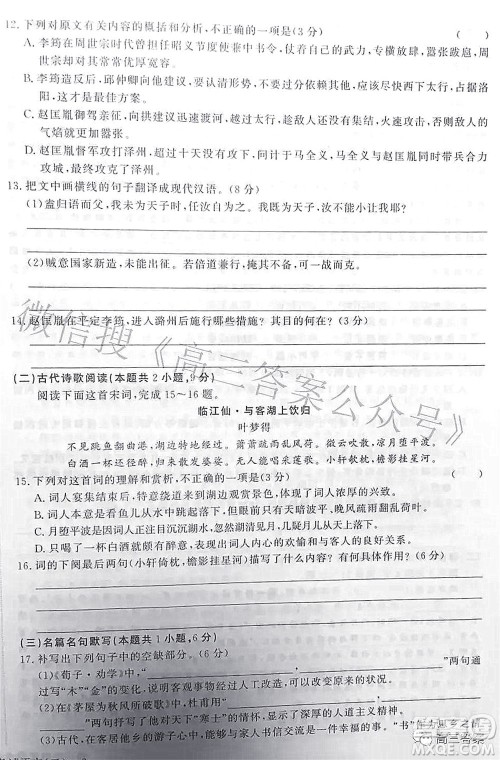 12. 下列对原文有关内容的概括和分析,不正确的一项是(3 分) ( )
A. 李筠在周世宗时代曾担任昭义节度使兼中书令,仗着自己的武力,专横放肆,嚣张跋扈,而周世宗却对其常常优厚宽容。
B. 李筠造反后,邱仲卿向他建议,要认清形势,不要过分依赖其他人,应该尽快西下太行,占据洛阳,这才是最佳方案。
C. 赵匡胤御驾亲征,向拱建议迅速渡河,趁敌人还没有集结,火速进行攻击,否则,敌人的气焰就更加嚣张。
D. 赵匡胤督军攻打泽州,十几天还没有攻下,向马全义询问对策,马全义与同时带兵合力攻城,最终攻克了泽州。
13. 把文中画横线的句子翻译成现代汉语。(8 分)
(1)盍归语而父,我未为天子时,任自为之,我既为天子,汝不能小让我耶?
(2)贼意国家新造,未能出征。若倍道兼行,掩其不备,可一战而克。
14. 赵匡胤在平定李筠,进入潞州后施行哪些措施?其目的何在?(3 分)
(二)古代诗歌阅读(本题共 2 小题,9 分)
阅读下面这首宋词,完成 15~16 题。
临江仙·与客湖上饮归
叶梦得
不见跳鱼翻曲港,湖边特地经过。萧萧疏雨乱风荷。微云吹散,凉月堕平波。
白酒一杯还径醉,归来散发婆娑。无人能唱采莲歌。小轩欹枕,檐影挂星河。
15. 下列对这首词的理解和赏析,不正确的一项是(3 分) ( )
A. 词人宴集结束后,特意绕行湖边,表明词人有着浓厚的兴致。
B. 词人本想看鱼儿从水中跳起落下,但现在雨打残荷,晚风疏雨翻乱荷叶。
C. 月堕平波写出了因词人的关注目沉沉湖水,忽见凉月,像是从天上掉下来。
D. 人只喝了一杯白酒就颇有醉意,但因没有人唱采莲曲,不能助兴,心中不愉快。
16. 词的下阕最后两句(小轩倚枕,檐影挂星河)描写了什么内容?有何具体作用?(6 分)
(三)名篇名句默写(本题共 1 小题,6 分)
17. 补写出下列句子中的空缺部分。(6 分)
(1)《荀子·劝学》中,“ , ”两句通过写“木”“金”的改变,来说明客观事物经过人工改造,可以改变原来的状况。
(2)在《茅屋为秋风所破歌》中,杜甫用“ , ”两句抒发了对天下“寒士”的关切之情,体现了诗人的博大胸怀。
(3)古代客居他乡的游子心中,都有抹不去的故乡,常常借“书”
微信搜《高三答案公众号》
高三答案